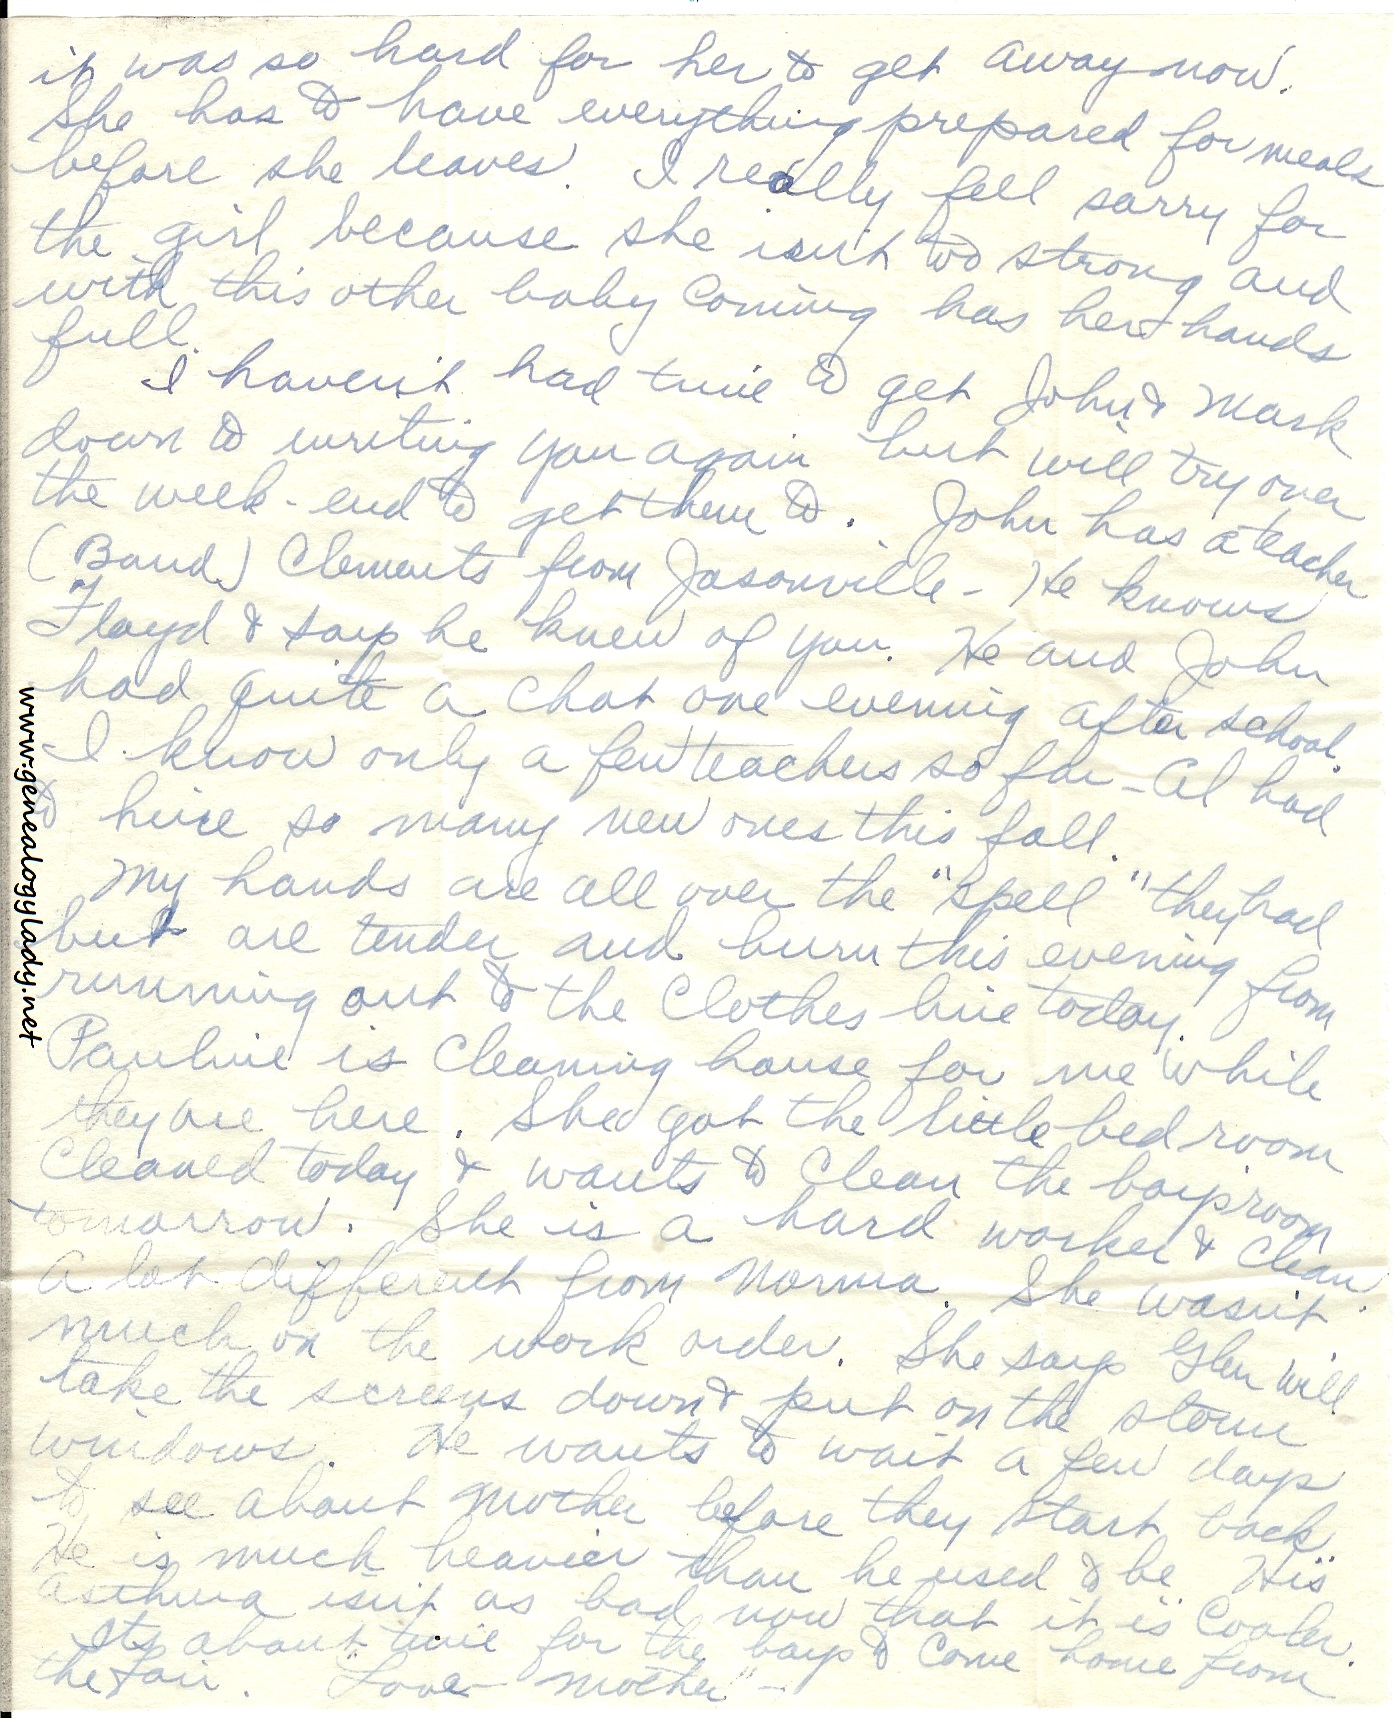 it was so hard for her to get away now.
She has to have everything prepared for meals
before she leaves. I really feel sorry for
the girl because she isn't too strong and
with this other baby coming has her hands
full.
I haven't had time to get John & Mark
down to writing you again but will try over
the week-end to get them to. John has a teacher
(Band) Clements from Jasonville - He knows
Floyd & says he knew of you. He and John
had quite a chat one evening after school.
I know only a few teachers so far - Al had
to hire so many new ones this fall.
My hands are all over the "spell" they had
but are tender and burn this evening from
running out to the clothes line today.
Pauline is cleaning house for me while
they are here. She got the little bed room
cleaned today & wants to clean the boys room
tomorrow. She is a hard worker & clean.
A lot different from Norma. She wasn't
much on the work order. She says Glen will
take the screens down & put on the storm
windows. He wants to wait a few days
to see about Mother before they start back.
He is much heavier than he used to be. His
asthma isn't as bad now that it is cooler.
Its about time for the boys to come home from
the fair. "Love - Mother" -
www.genealogylady.net